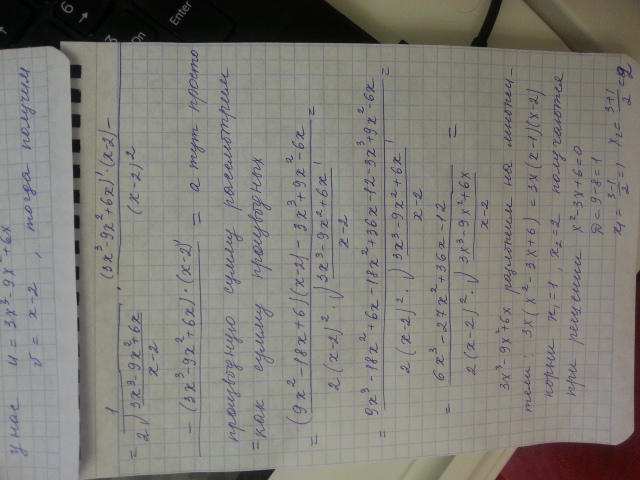 у нас u = 3x³-9x²+6x
v = x-2 , тогда получим
= 1 / (2√((3x³-9x²+6x)/(x-2))) · ((3x³-9x²+6x)'·(x-2) -
- (3x³-9x²+6x)·(x-2)') / (x-2)² = а тут просто
производную сумму рассмотрим
=как сумму производных
= ((9x²-18x+6)(x-2) - 3x³+9x²-6x) / (2(x-2)²·√((3x³-9x²+6x)/(x-2))) =
= (9x³-18x²+6x-18x²+36x-12-3x³+9x²-6x) / (2(x-2)²·√((3x³-9x²+6x)/(x-2))) =
= (6x³-27x²+36x-12) / (2(x-2)²·√((3x³-9x²+6x)/(x-2))) =
3x³-9x²+6x разложим на множи-
тели: 3x(x²-3x+6) = 3x(x-1)(x-2)
корни x₁=1, x₂=2 получаются
при решении x²-3x+6=0
D=9-8=1
x₁= (3-1)/2 =1 x₂= (3+1)/2 =2
6
3
Enter